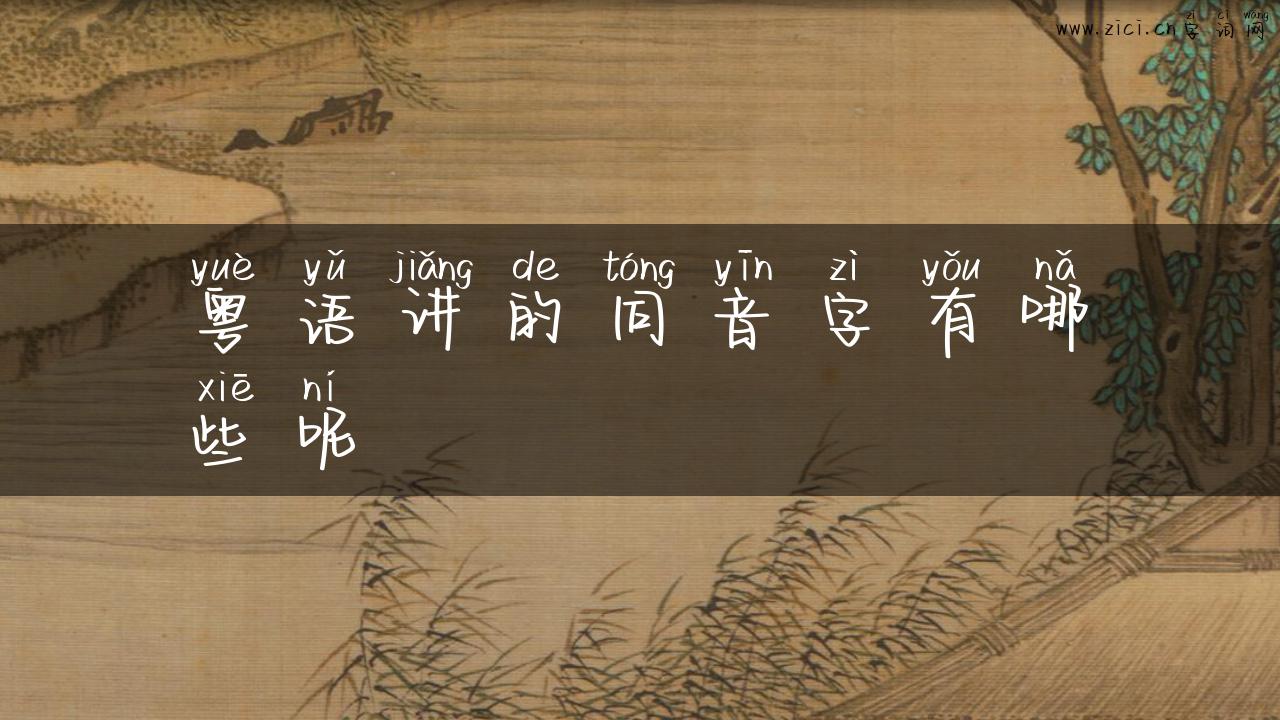 zì cí wǎng
www.zici.cn字词网
yuè yǔ jiǎng de tóng yīn zì yǒu nǎ
粤语讲的同音字有哪
xiē ní
些呢